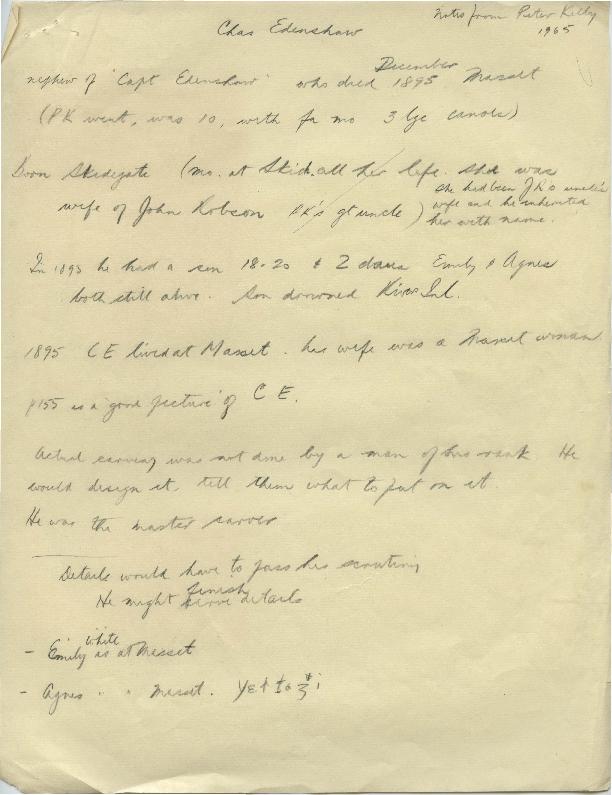 Notes from Peter Kelly
1965
Chas Edenshaw
nephew of "Capt Edenshaw" who died December 1895 Masset
(PK went, was 10, with fa mo 3 lge canoes)
Born Skidegate (mo. at Skid. all her life. She was
wife of John Robson PK's gt uncle)
she had been JR's uncle's
wife and he inherited
her with name.
In 1895 he had a son 18-20 & 2 daus Emily & Agnes
both still alive. Son drowned Rivers Inl.
1895 CE lived at Masset. his wife was a Masset woman
p155 is a "good picture" of C E.
Actual carving was not done by a man of his rank He
would design it tell them what to put on it.
He was the master carver
Details would have to pass his scrutiny
He might finish carve details
- Emily White is at Masset
- Agnes " " Masset.